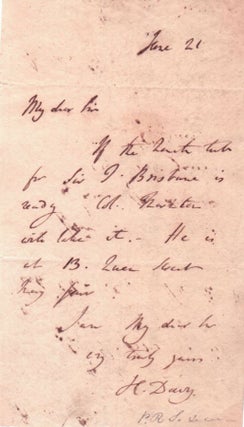 June 21
My dear Sir
If the tube
for Sir T. Brisbane is
ready Col.
will take it. - He is
at 13. Queen Street
May fair
I am My dear Sir
very truly yours
H. Davy.
P.R.S.